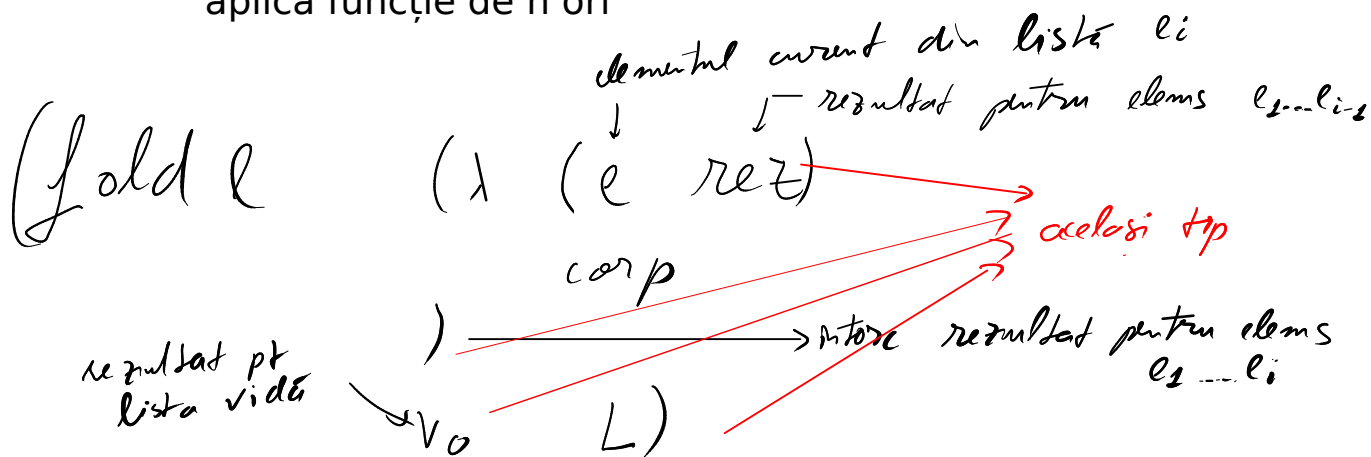 aplica funcție de n ori
elementul curent din listă ei
rezultat pentru elems e1...ei-1
(foldl (λ (e rez)
același tip
corp
) întorc rezultat pentru elems
e1 ... ei
rezultat pt
lista vidă
v0 L)